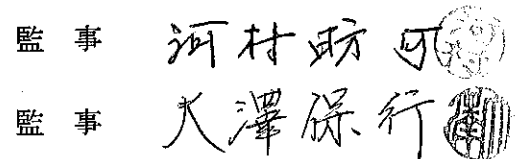 監事 河村
監事 大澤保行